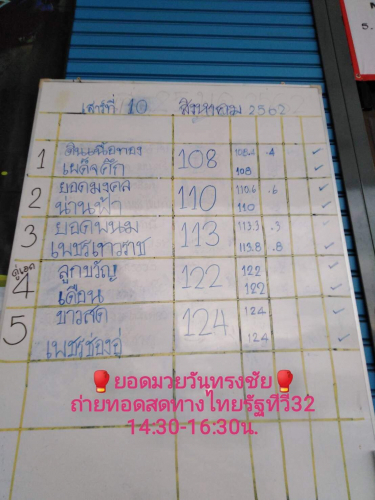 เสาร์ที่ 10 สิงหาคม 2562
1 108 108.4 .4 ✓
เผด็จศึก 108 ✓
2 ยอดมงคล 110 110.6 .6 ✓
น่านฟ้า 110 ✓
3 ยอดพนม 113 113.3 .3 ✓
เพชรเทวราช 113.8 .8 ✓
คู่เอก 4 ลูกขวัญ 122 122 ✓
เดือน 122 ✓
5 ขาวสด 124 124
เพชรช่องอู่ 124 ✓
🥊ยอดมวยวันทรงชัย🥊
ถ่ายทอดสดทางไทยรัฐทีวี32
14:30-16:30น.
5.